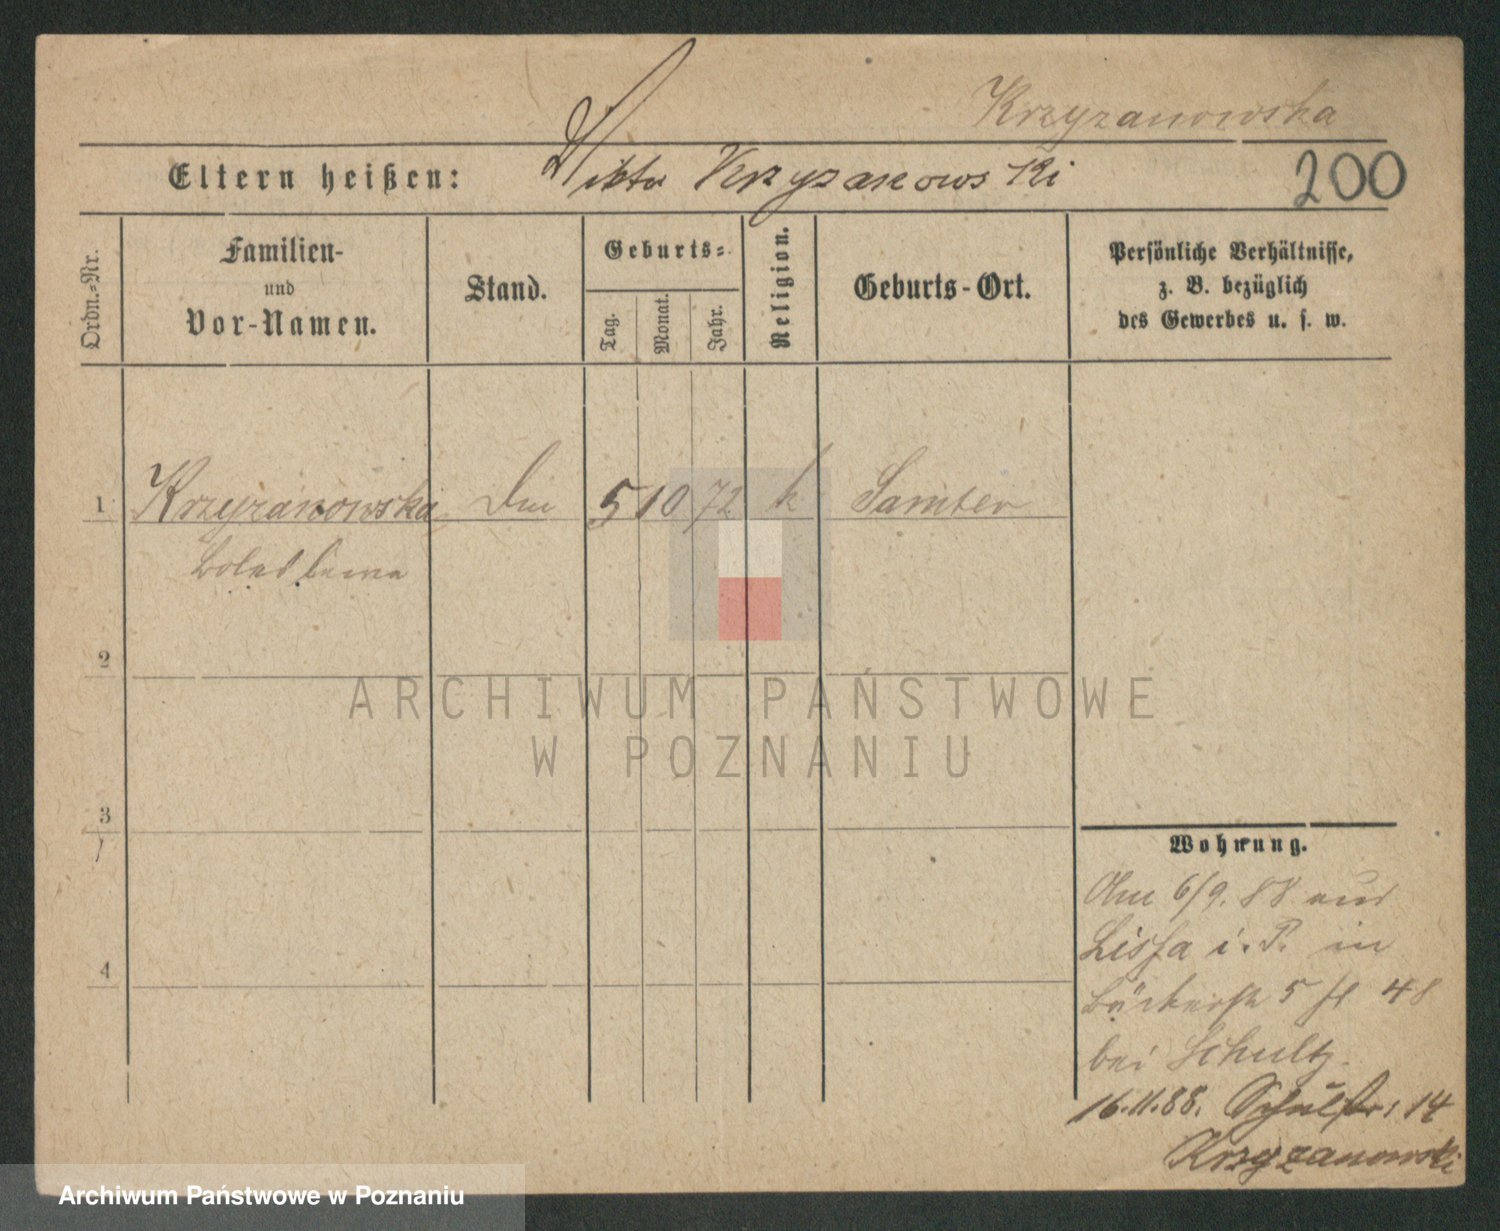 Krzyzanowska
Eltern heißen: Viktor Krzyzanowski
200
Ordn.=Nr.
Familien-
und
Vor-Namen.
Stand.
Geburts=
Tag.
Monat.
Jahr.
Religion.
Geburts-Ort.
Persönliche Verhältnisse,
z. B. bezüglich
des Gewerbes u. s. w.
1 Krzyzanowska 5 10 72 k Samter
Boleslawa
2
3
4
Wohnung.
Am 6/9. 88 aus
Lissa i. P. in
Bäckerstr 5
bei Schultz.
16.11.88. Schulstr: 14
Krzyzanowski
ARCHIWUM PAŃSTWOWE
W POZNANIU
Archiwum Państwowe w Poznaniu